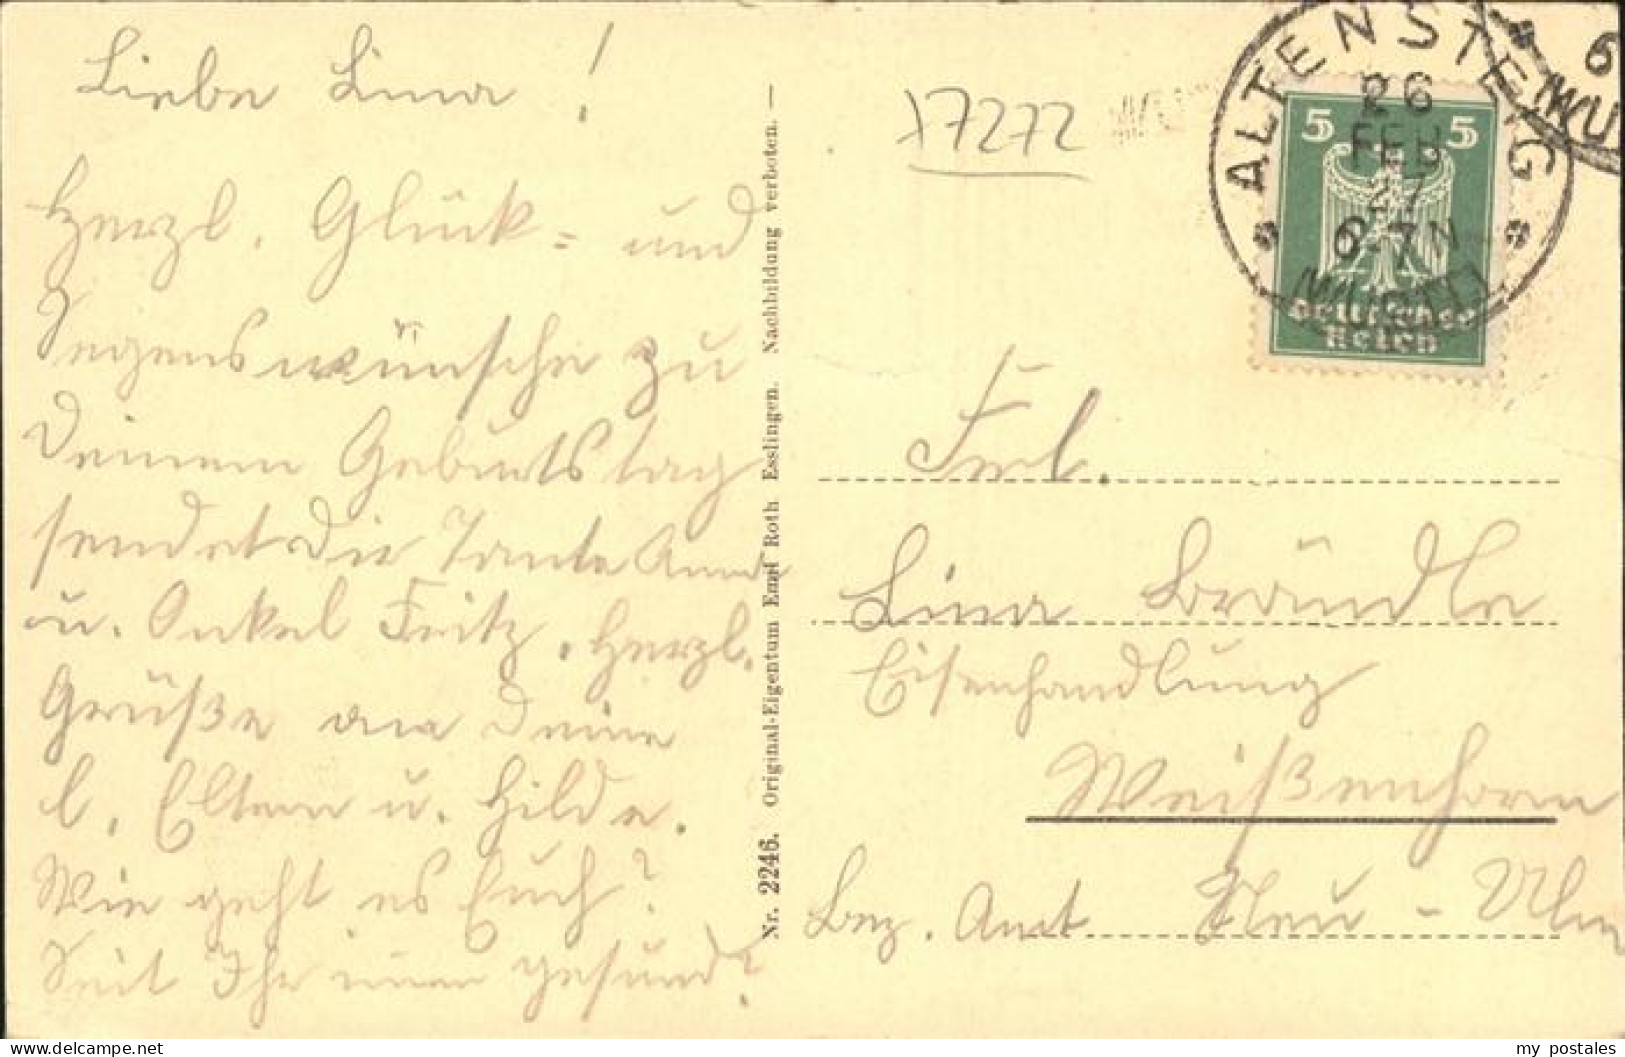 Liebe Lina!
Herzl. Glück- und
Segenswünsche zu
Deinem Geburtstag
sendet Dir Tante Anna
u. Onkel Fritz. Herzl.
Grüße an Deine
l. Eltern u. Hilde.
Wie geht es Euch?
Seit Ihr immer gesund?
Nr. 2246. Original-Eigentum Emil Roth Esslingen. Nachbildung verboten. —
17272
ALTENSTEIG
26
FEB
27
6-7 N
(WÜRTT)
5 5
Deutsches
Reich
6
(WÜ
Frl.
Lina Brändle
Eisenhandlung
Weißenhorn
Bez. Amt Neu-Ulm
my postales
www.delcampe.net